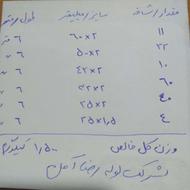 مقدار/شاخه سایز/میلیمتر طول/متر
۱۱ ۶۰×۲ ۶ متر
۳۲ ۵۰×۲ ۶ 〃
۱۰ ۴۲×۲ ۶ 〃
۶۰ ۳۲×۲ ۶ 〃
۴۰ ۲۵×۲ ۶ 〃
۴ ۲۵×۱,۵ ۶ 〃
وزن کل خالص ۱,۵۰۰ کیلوگرم
شرکت لوله رضا آمل